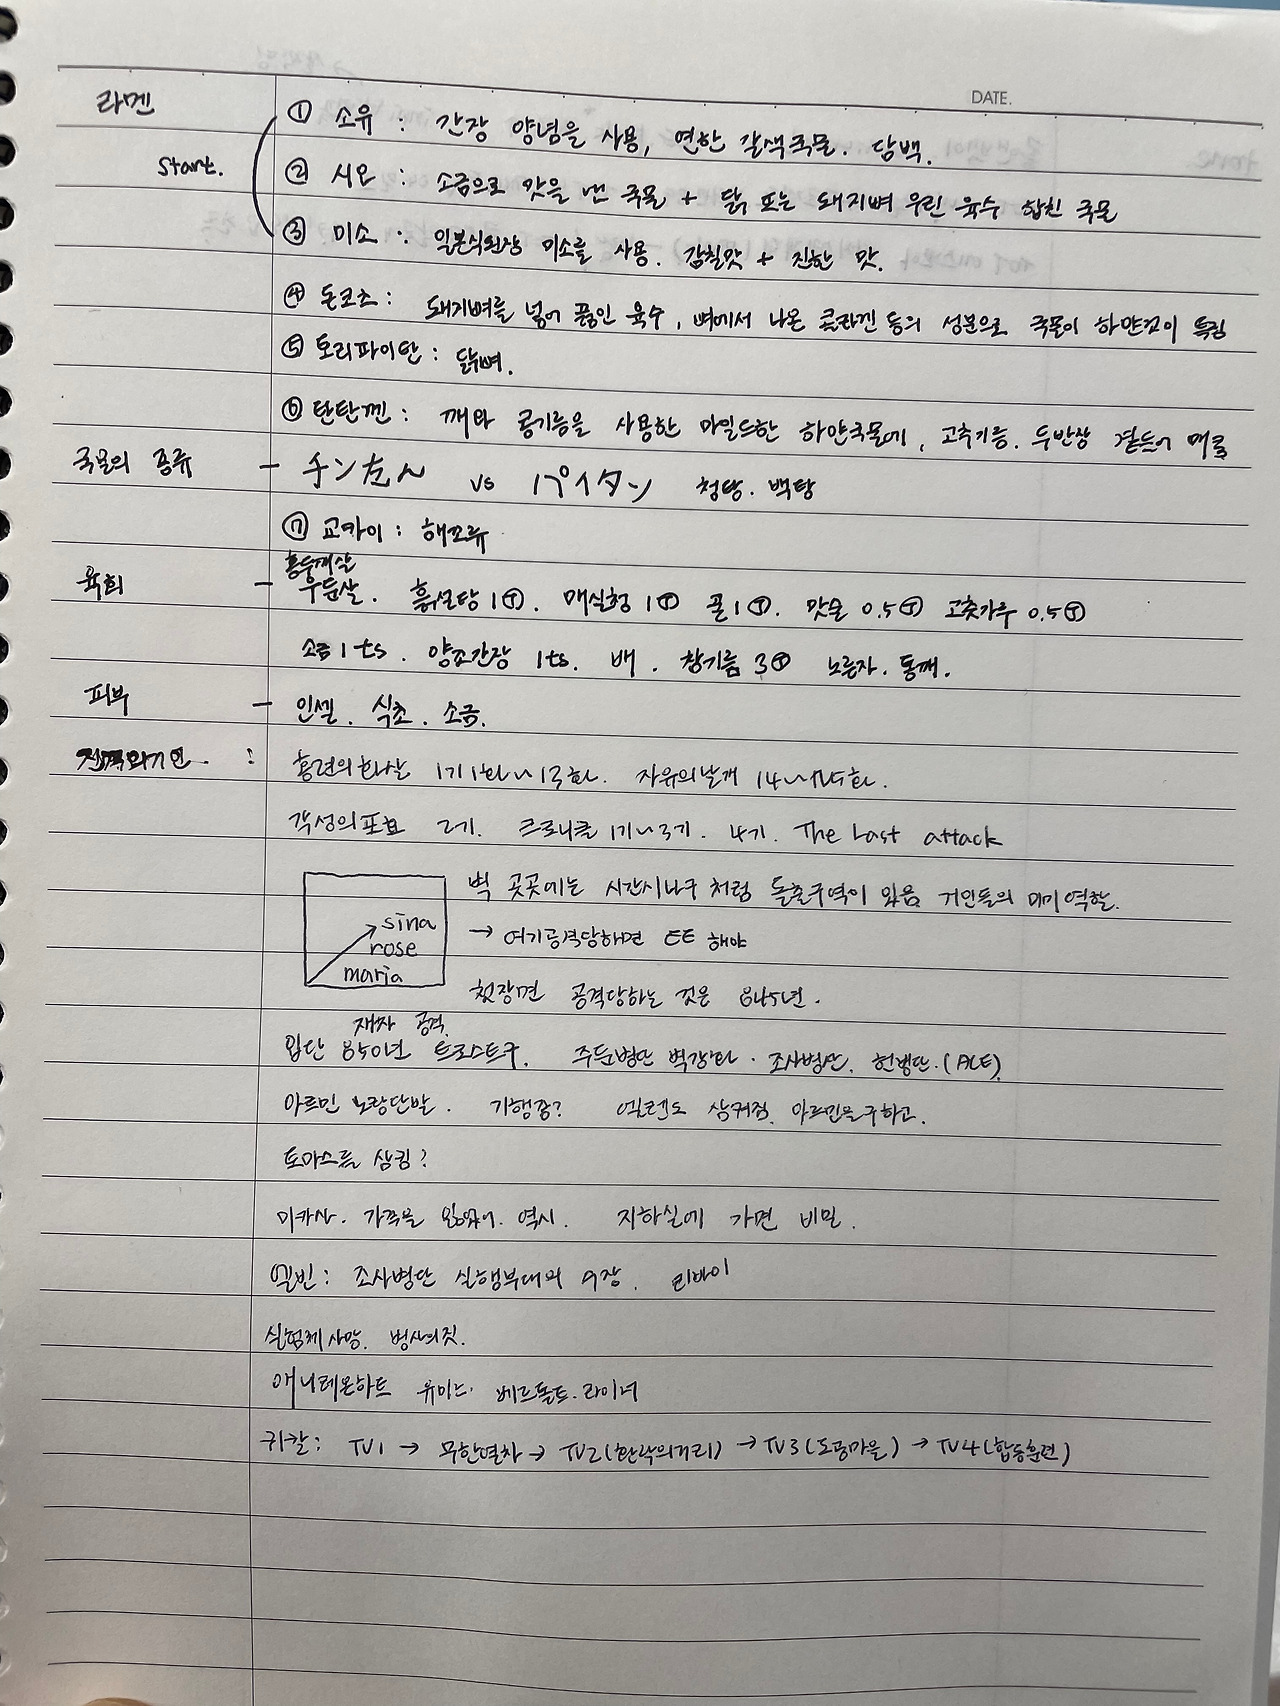 DATE.
라멘
Start.
① 소유 : 간장 양념을 사용, 연한 갈색국물. 담백.
② 시오 : 소금으로 맛을 낸 국물 + 닭 또는 돼지뼈 우린 육수 합친 국물
③ 미소 : 일본식된장 미소를 사용. 감칠맛 + 진한 맛.
④ 돈코츠 : 돼지뼈를 넣어 끓인 육수, 뼈에서 나온 콜라겐 등의 성분으로 국물이 하얀것이 특징
⑤ 토리파이탄 : 닭뼈.
⑥ 탄탄껜 : 깨와 콩기름을 사용한 마일드한 하얀국물에, 고추기름. 두반장 곁들여 매콤
국물의 종류 - チン vs パイタン 청탕. 백탕
⑦ 교카이 : 해조류
홍두깨살
육회 - 우둔살. 흑설탕 1Ⓣ. 매실청 1Ⓣ 꿀 1Ⓣ. 맛술 0.5Ⓣ 고춧가루 0.5Ⓣ
소금 1ts. 양조간장 1ts. 배. 참기름 3Ⓣ 노른자. 통깨.
피부 - 인셀. 식초. 소금.
: 홍련의화살 1기 1화~13화. 자유의날개 14~화.
각성의포효 2기. 크로니클 1기~3기. 4기. The Last attack
벽 곳곳에는 시간시나구 처럼 돌출구역이 있음 거인들의 미끼역할.
sina
rose
maria
→ 여기공격당하면 EE 해야
첫장면 공격당하는 것은 845년.
재차 공격.
입단 850년 트로스트구. 주둔병단 벽강화. 조사병단. 헌병단.
아르민 노랑단발. 기행종? 엘렌도 삼켜짐. 아르민을구하고.
토마스를 삼킴?
미카사. 가족을 잃었어. 역시. 지하실에 가면 비밀.
엘빈 : 조사병단 실행부대의 수장. 리바이
실험체사망. 병사의짓.
애니레온하트 유미르. 베르톨트. 라이너
귀칼 : TV1 → 무한열차 → TV2 (환락의거리) → TV3 (도공마을) → TV4 (합동훈련)